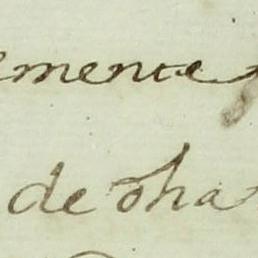 emente
de oha